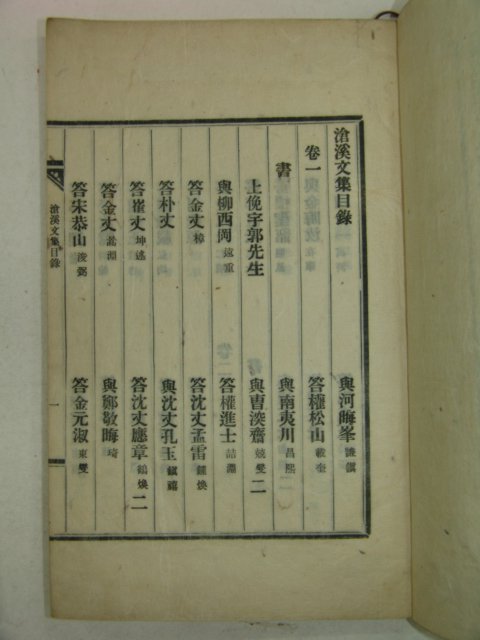 滄溪文集目錄
卷一
書
上俛宇郭先生
與柳西岡 遠重
答金丈 樟
答朴丈
答崔丈 坤述
答金丈
答宋恭山 浚弼
與河晦峯 謙鎭
答權松山 載奎
與南夷川 昌熙
與曹湥齋 兢燮 二
答權進士 喆淵
答沈丈孟雷 鍾煥
與沈丈孔玉 鎭禧
答沈丈應章 鶴煥 二
與鄭敬晦 琦
答金元淑 東燮
滄溪文集 目錄
一